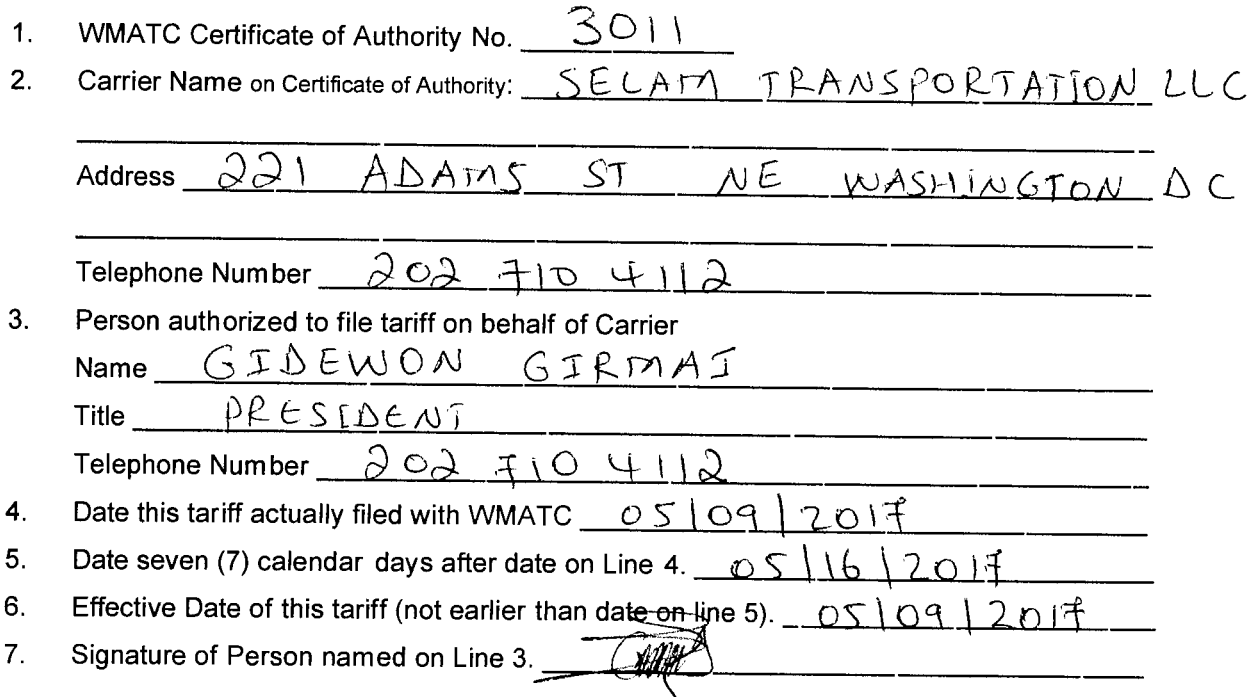 1. WMATC Certificate of Authority No. 3011
2. Carrier Name on Certificate of Authority: SELAM TRANSPORTATION LLC
Address 221 ADAMS ST NE WASHINGTON DC
Telephone Number 202 710 4112
3. Person authorized to file tariff on behalf of Carrier
Name GIDEWON GIRMAI
Title PRESIDENT
Telephone Number 202 710 4112
4. Date this tariff actually filed with WMATC 05/09/2017
5. Date seven (7) calendar days after date on Line 4. 05/16/2017
6. Effective Date of this tariff (not earlier than date on line 5). 05/09/2017
7. Signature of Person named on Line 3.